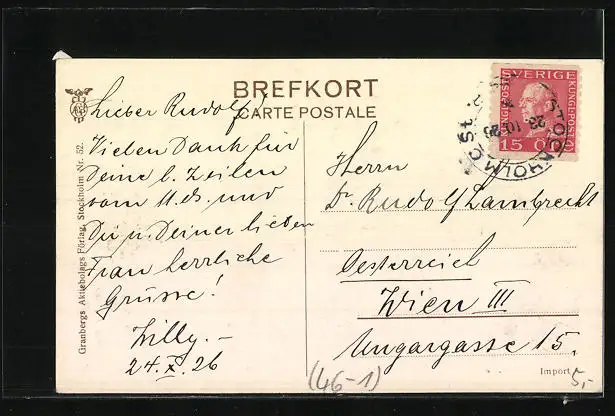 BREFKORT
CARTE POSTALE
Lieber Rudolf!
Vielen Dank für
Deine l. Zeilen
vom 11. ds. und
Dir u. Deiner lieben
Frau herrliche
Grüsse!
Willy. –
24.X.26
Granbergs Aktiebolags Förlag, Stockholm Nr. 52.
SVERIGE
KUNGL. POST
15 ÖRE
STOCKHOLM
Herrn
Dr. Rudolf Lambrecht
Oesterreich
Wien III
Ungargasse 15.
Import
5,-
(46-1)